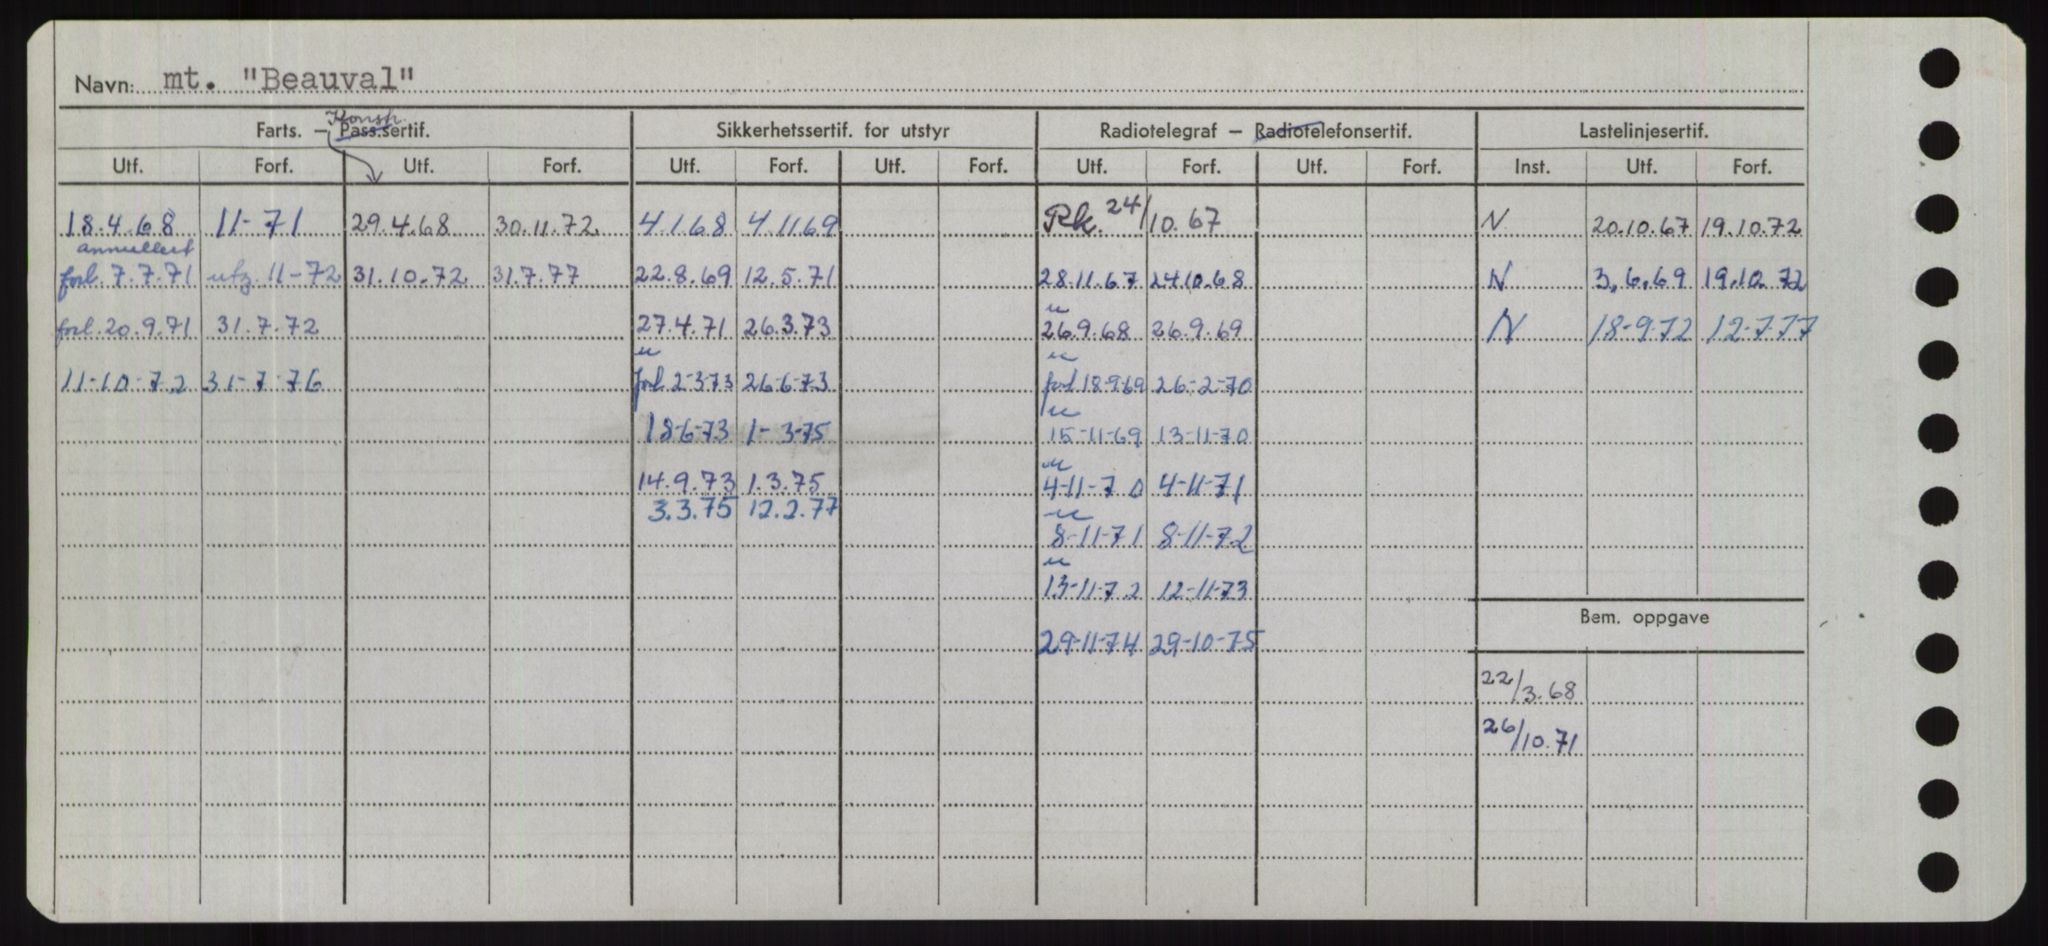 Navn: mt. "Beauval"
Konstr.
Farts. – Pass.sertif. Sikkerhetssertif. for utstyr Radiotelegraf – Radiotelefonsertif. Lastelinjesertif.
Utf. Forf. Utf. Forf. Utf. Forf. Utf. Forf. Utf. Forf. Utf. Forf. Inst. Utf. Forf.
18.4.68 11-71 29.4.68 30.11.72 4.1.68 4.11.69 Rk. 24/10.67 N 20.10.67 19.10.72
annullert
forl. 7.7.71 utg. 11-72 31.10.72 31.7.77 22.8.69 12.5.71 28.11.67 24.10.68 N 3.6.69 19.10.72
u
forl. 20.9.71 31.7.72 27.4.71 26.3.73 26.9.68 26.9.69 N 18-9.72 12-7.77
u u
11-10-72 31-7-76 forl 2-3-73 26-6-73 forl 18-9-69 26-2-70
u
18-6-73 1-3-75 15-11-69 13-11-70
u
14.9.73 1.3.75 4-11-70 4-11-71
3.3.75 12.2.77
u
8-11-71 8-11-72
u
13-11-72 12-11-73
Bem. oppgave
29-11-74 29-10-75
22/3.68
26/10.71